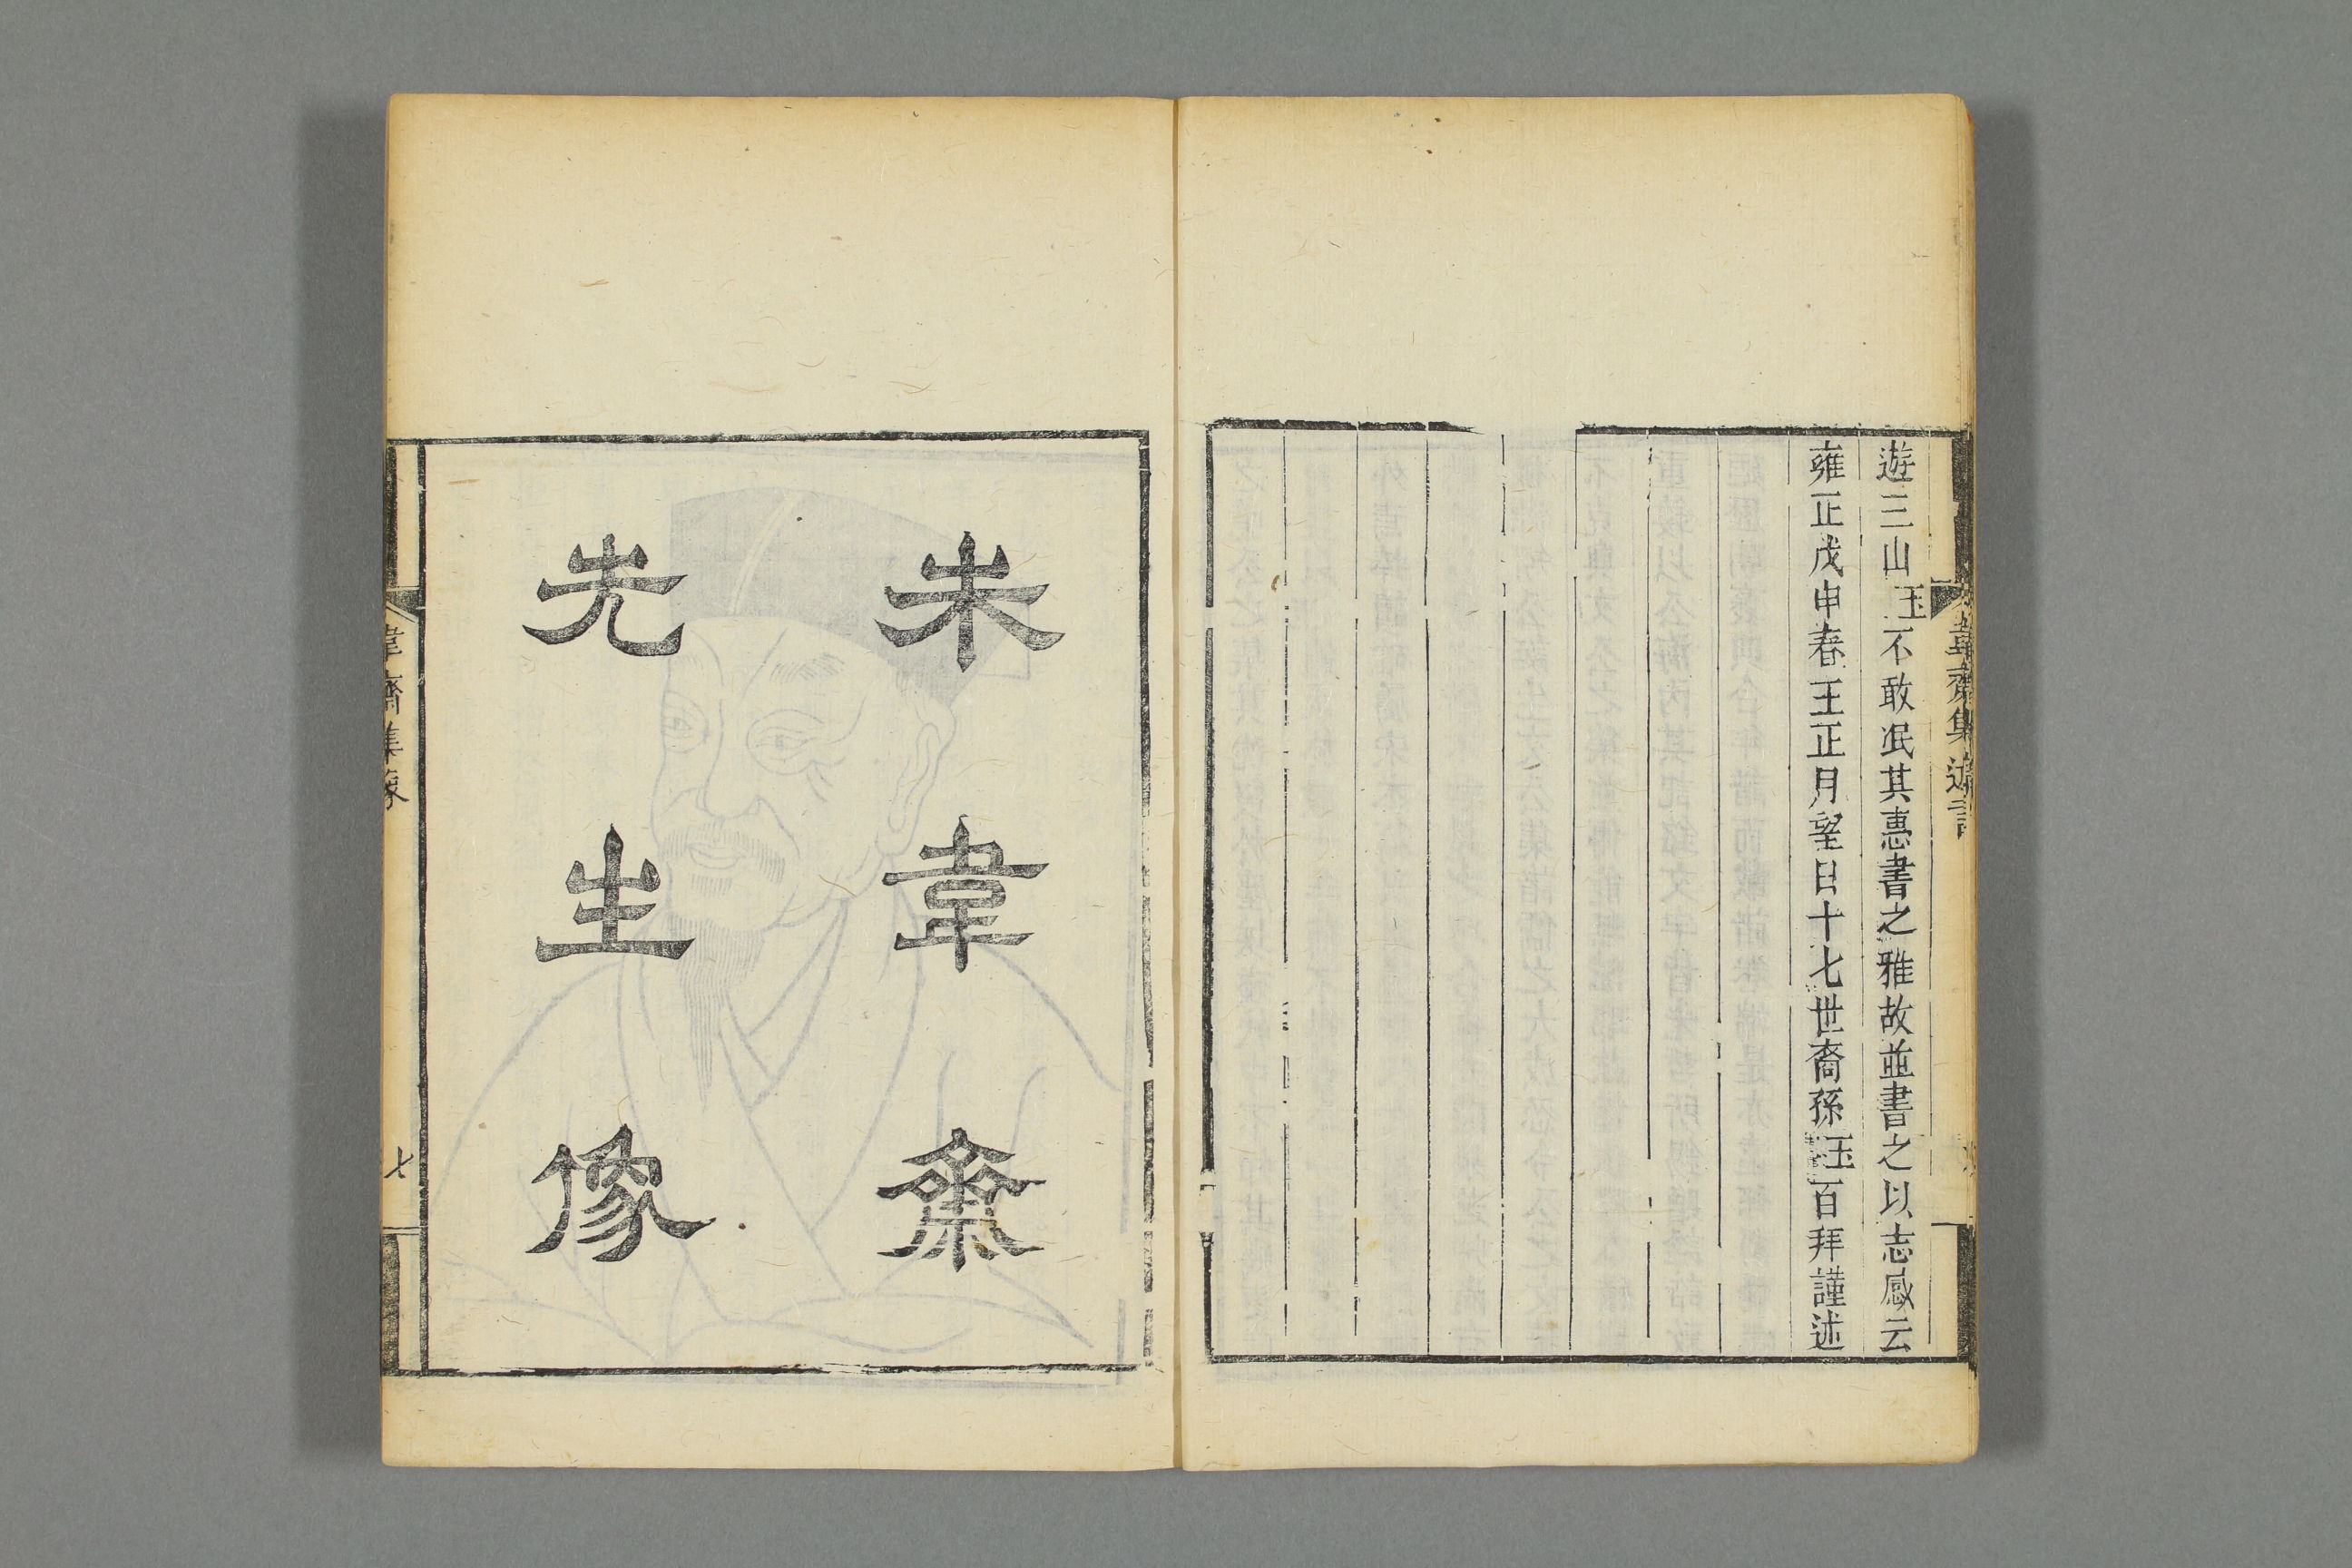 遊三山玉不敢泯其惠書之雅故並書之以志感云
雍正戊申春王正月望日十七世裔孫玉百拜謹述
朱韋齋
先生像
韋齋集像
七